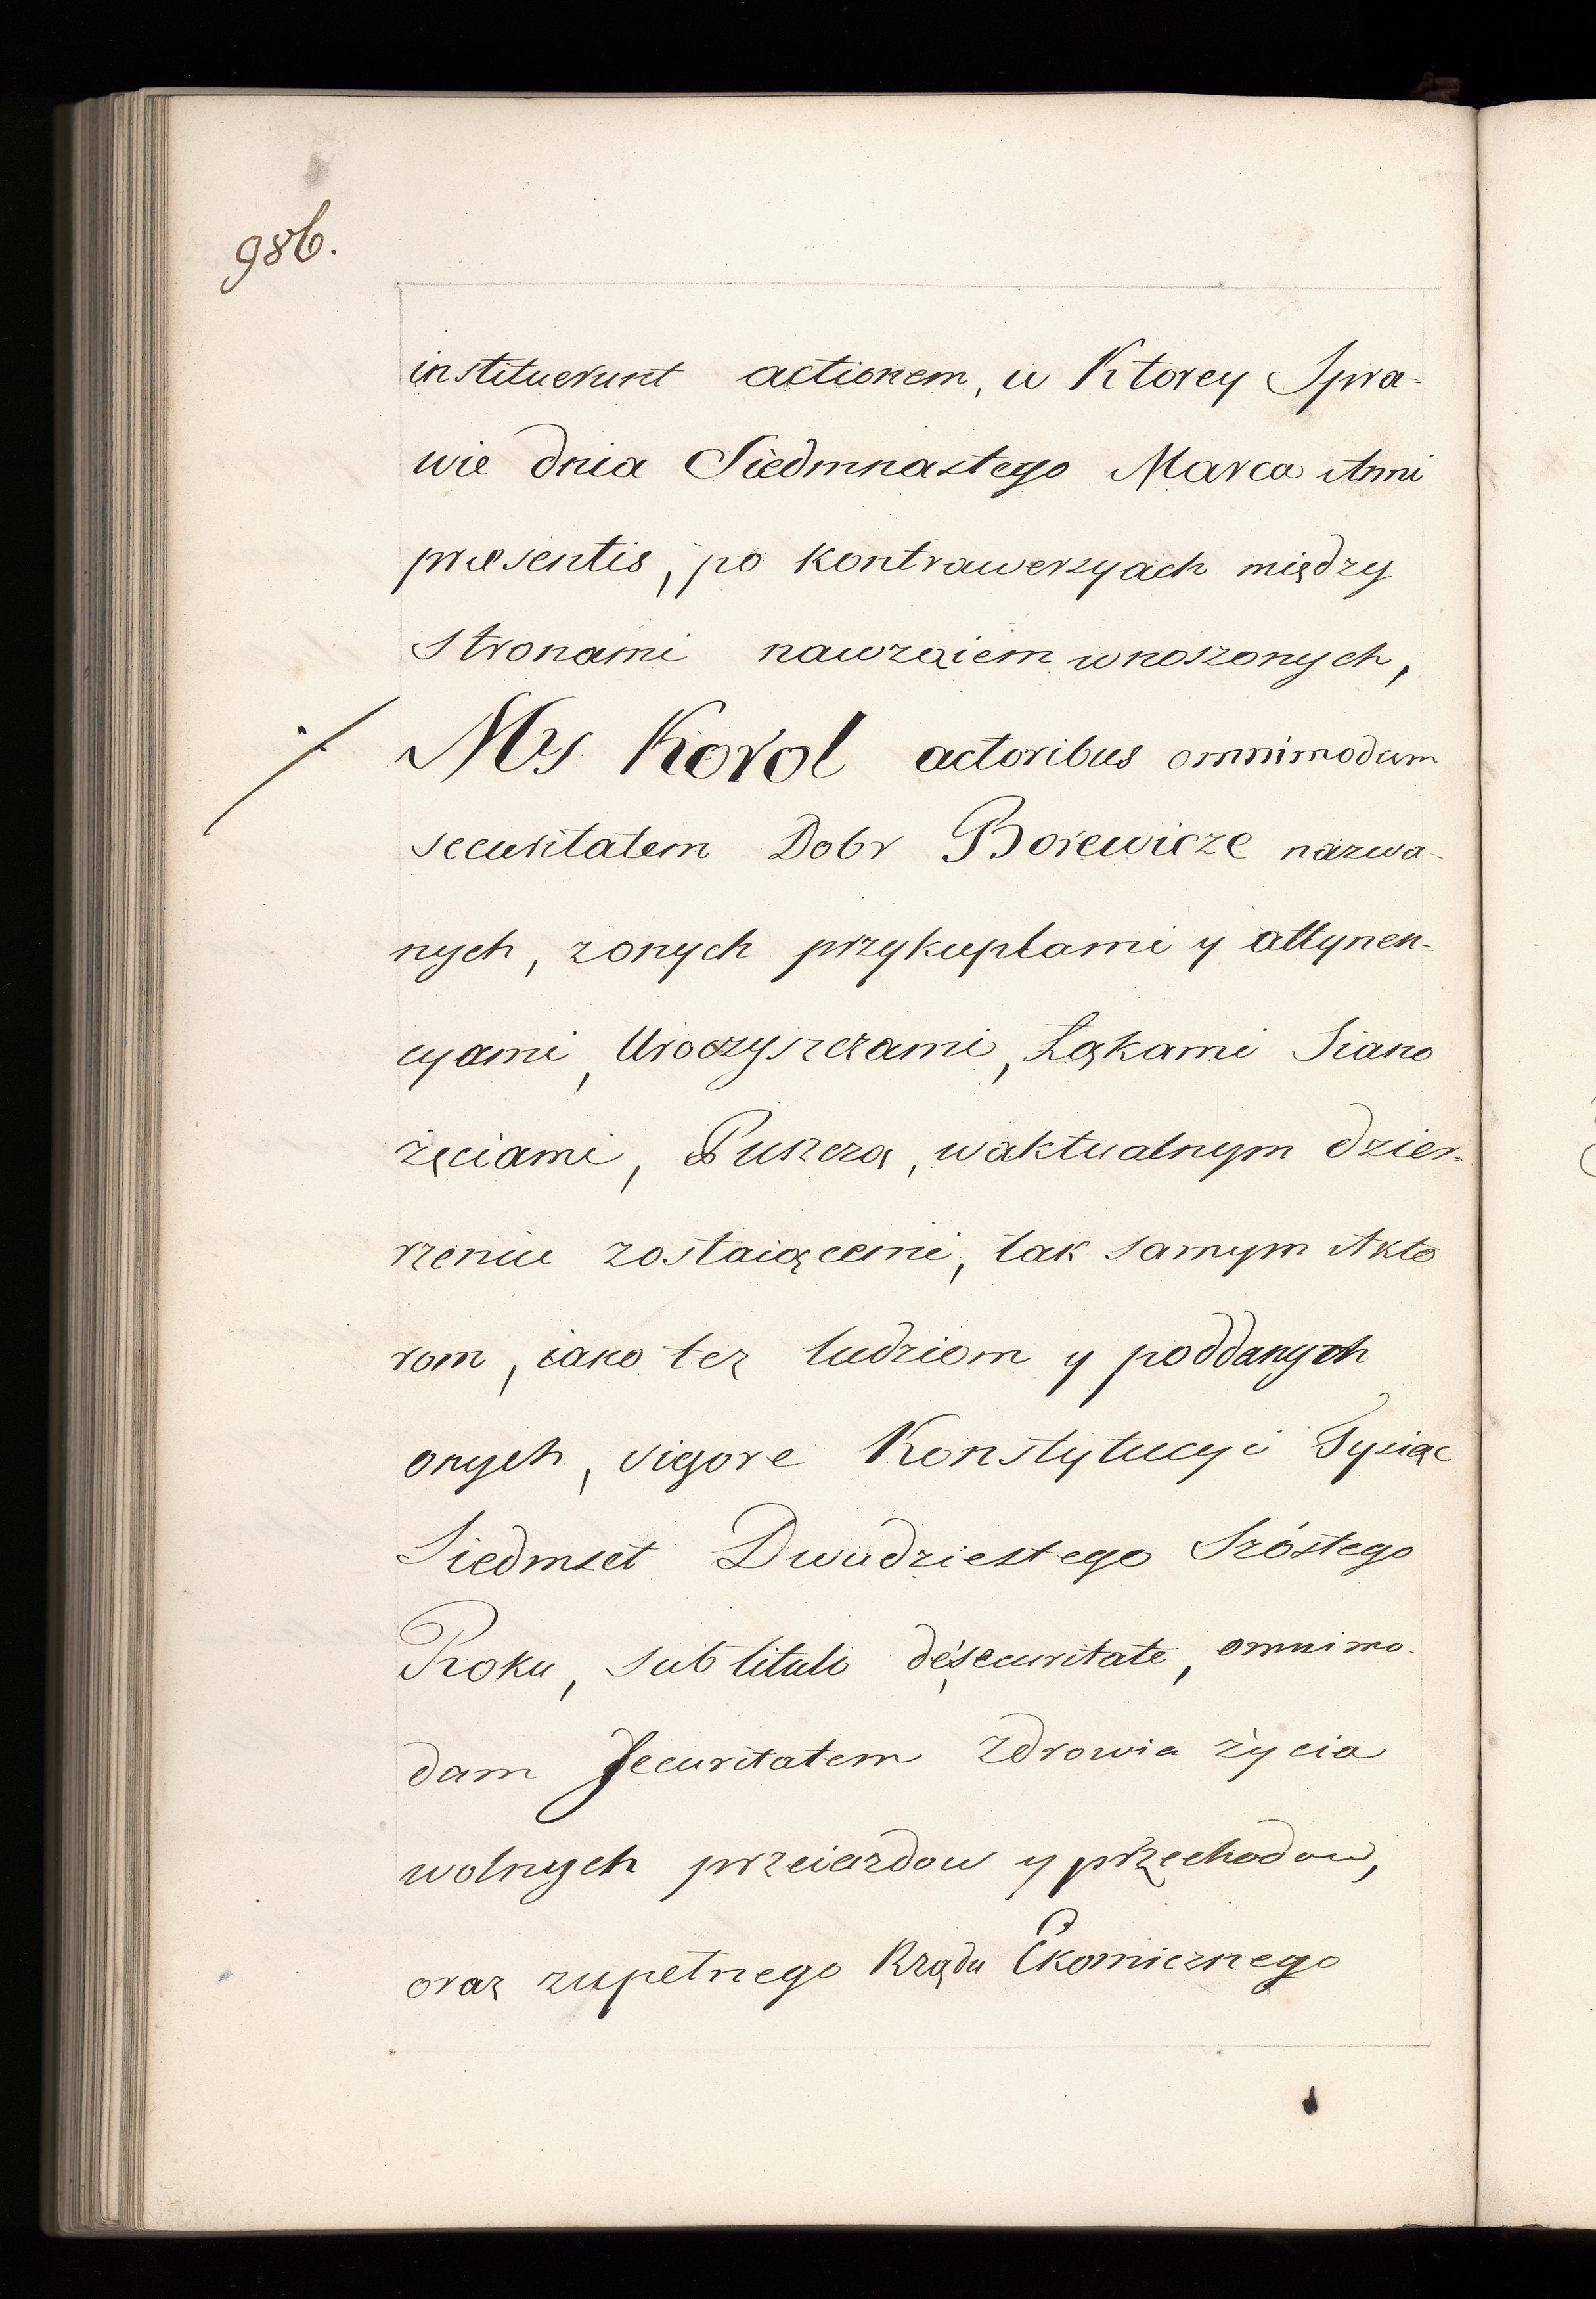 986.
instituerunt actionem, w Ktorey Spra-
wie dnia Siedmnastego Marca Anni
præsentis, po kontrawersyach między
stronami nawzaiem wnoszonych,
My Korol actoribus omnimodam
securitatem Dobr Borewicze nazwa-
nych, zonych przykuplami y attynen-
cyami, Uroczyszczami, Łąkami Siano
żęciami, Puszczą, waktualnym dzier-
rzeniu zostaiącemi, tak samym Akto
rom, iako tez ludziom y poddanych
onych, vigore Konstytucyi Tysiąc
Siedmset Dwudziestego Szóstego
Roku, sub titulo de securitate, omnimo-
dam Securitatem zdrowia życia
wolnych przeiazdow y przechodow,
oraz zupełnego Rządu Ekomicznego